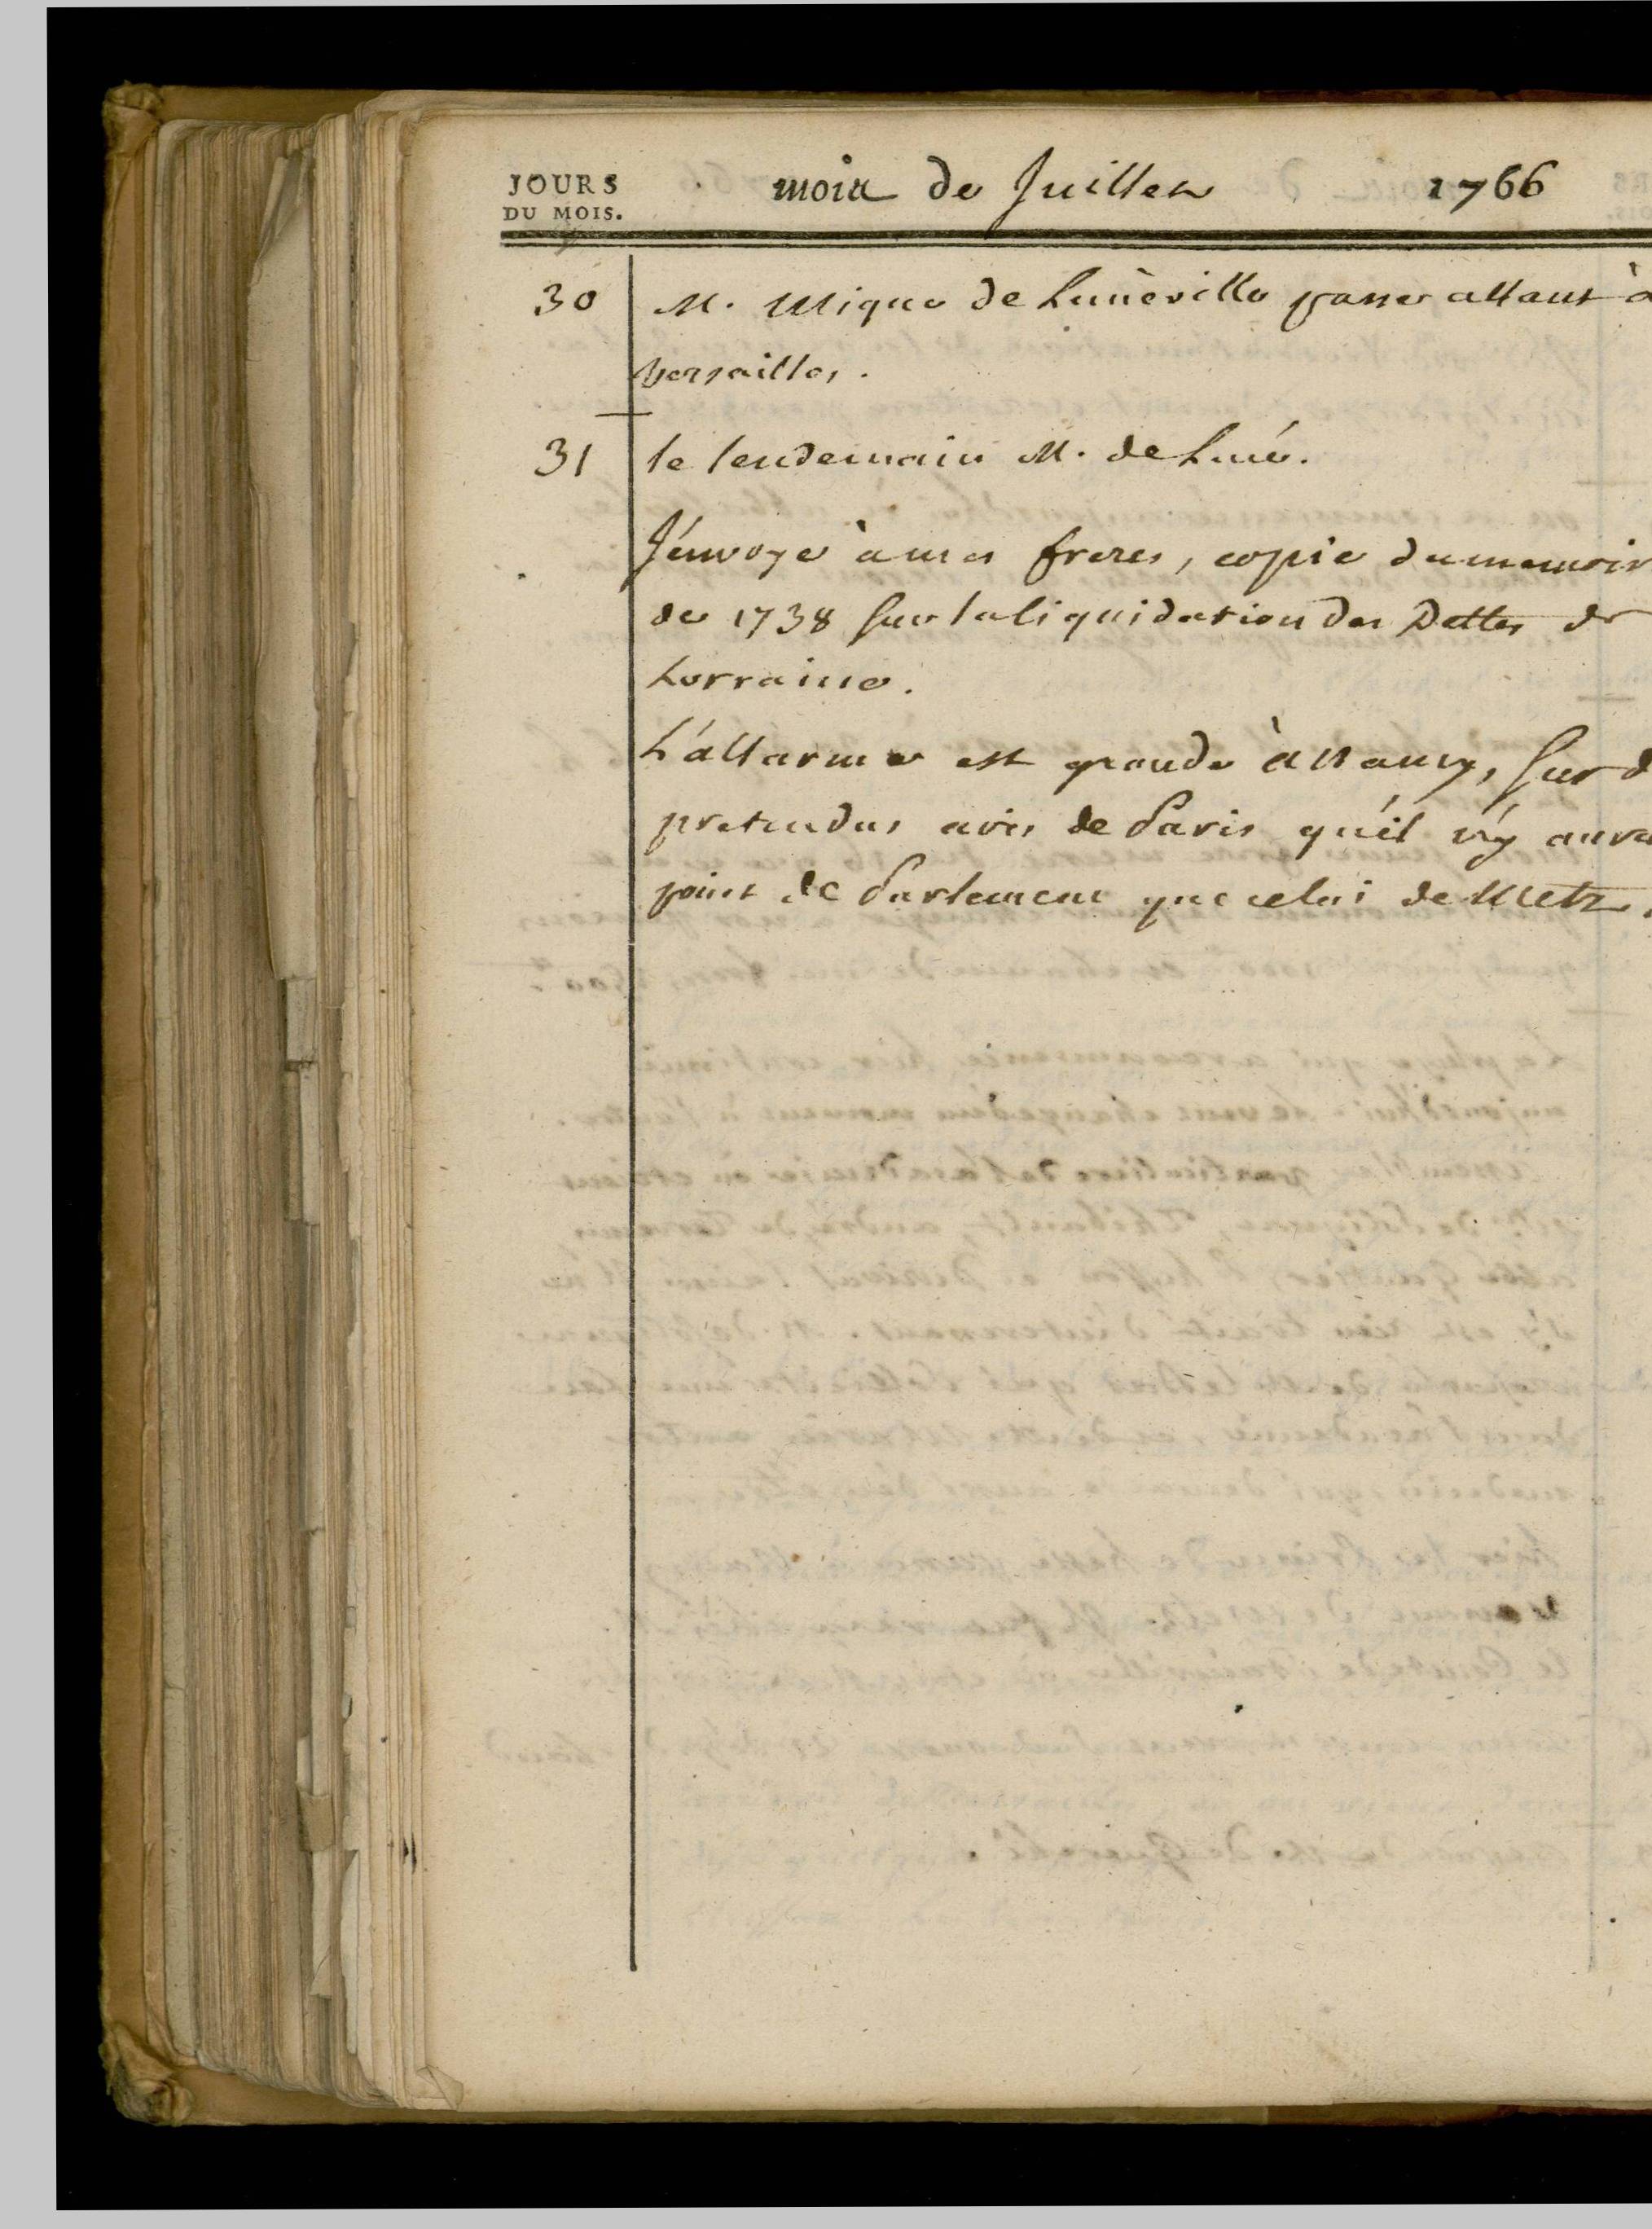 JOURS
DU MOIS.
mois de Juillet 1766
30 M. Mique de Lunéville passe allant à
Versailles.
31 le lendemain M. de Lucé.
J'envoye à mes freres, copie du memoir
de 1738 sur la liquidation des Dettes de
Lorraine.
L'allarme est grande à Nancy, sur d
pretendus avis de Paris qu'il n'y aura
point de Parlement que celui de Metz.